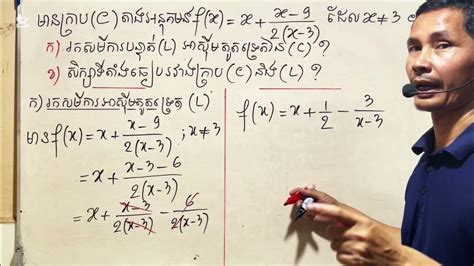 មានក្រាប (C) តាងអនុគមន៍ f(x) = x + \frac{x-9}{2(x-3)} ដែល x ≠ 3
ក) រកសមីការបន្ទាត់ (L) អាស៊ីមតូតទ្រេតនៃ (C) ?
ខ) សិក្សាទីតាំងធៀបរវាងក្រាប (C) និង (L) ?
ក) រកសមីការអាស៊ីមតូតទ្រេត (L)
មាន f(x) = x + \frac{x-9}{2(x-3)} ; x ≠ 3
= x + \frac{x-3-6}{2(x-3)}
= x + \frac{x-3}{2(x-3)} - \frac{6}{2(x-3)}
f(x) = x + \frac{1}{2} - \frac{3}{x-3}